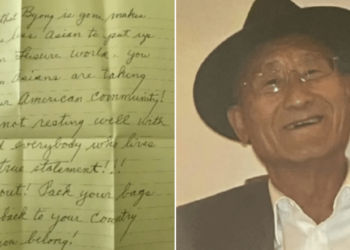 that Byong is gone makes
less Asian to put up
Leisure World... you
asians are taking
American Community!
not resting well with
everybody who lives
true statement!!!
out! Pack your bags
back to your Country
belong!